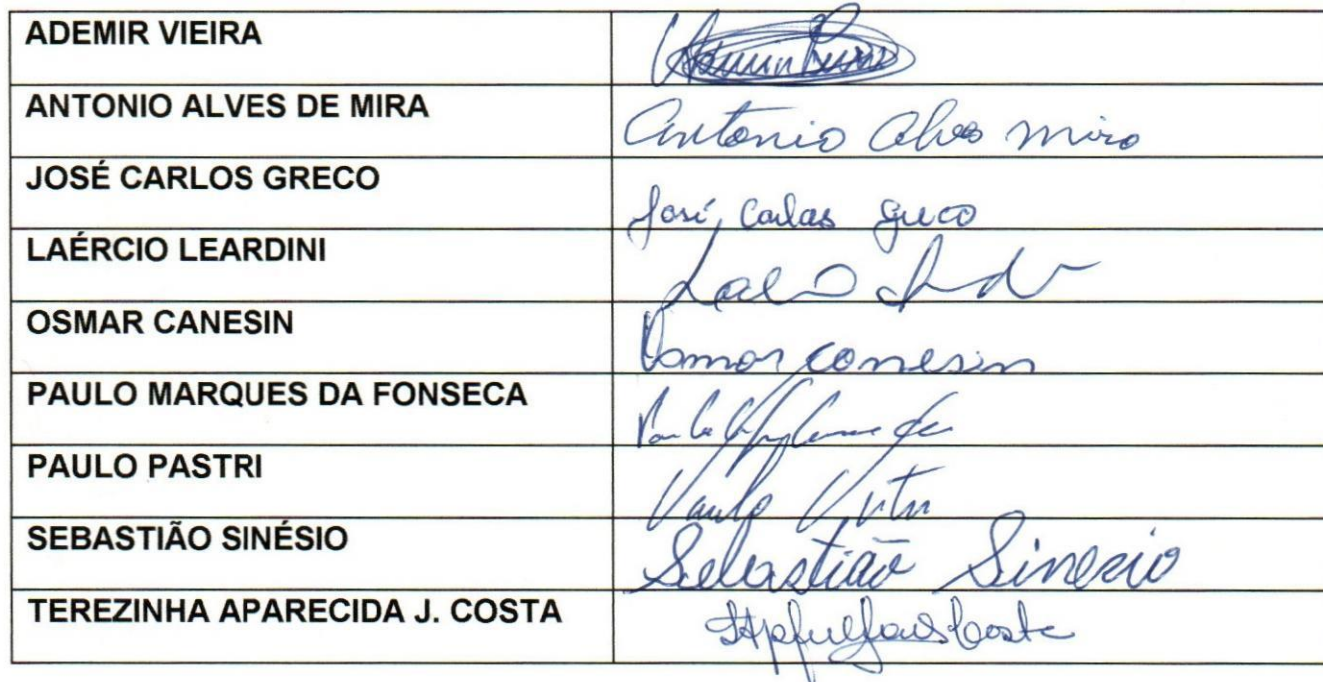 ADEMIR VIEIRA
ANTONIO ALVES DE MIRA Antonio Alves Mira
JOSÉ CARLOS GRECO José Carlos Greco
LAÉRCIO LEARDINI
OSMAR CANESIN Osmar Canesin
PAULO MARQUES DA FONSECA
PAULO PASTRI Paulo
SEBASTIÃO SINÉSIO Sebastião Sinezio
TEREZINHA APARECIDA J. COSTA